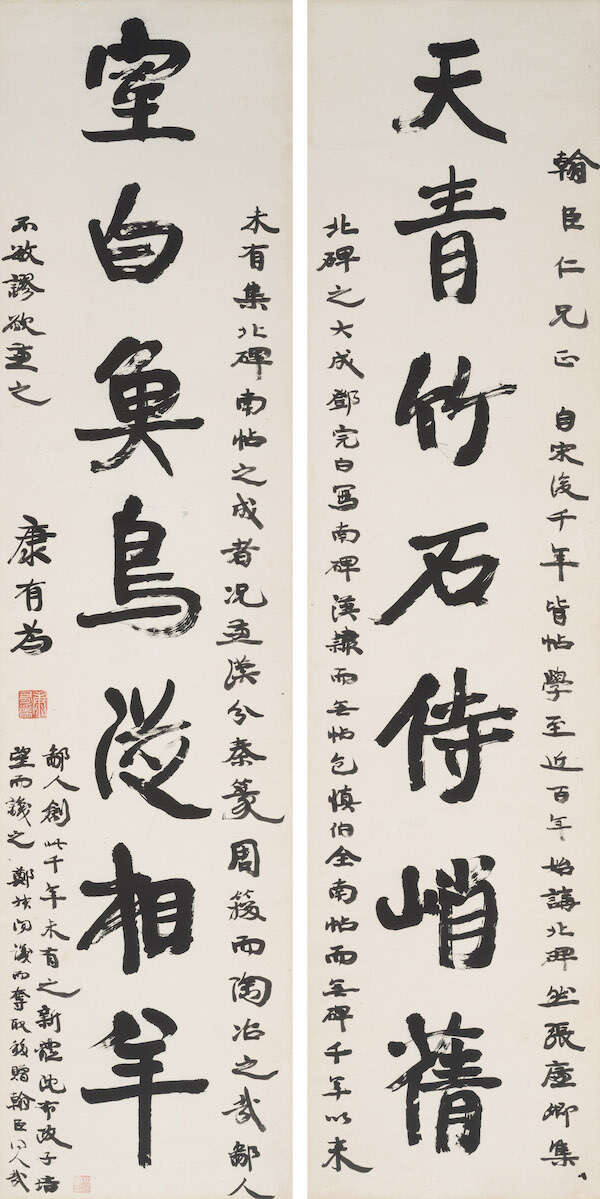 翰臣仁兄正 自宋後千年皆帖學至近百年始講北碑然張廉卿集
天青竹石侍峭蒨
北碑之大成鄧完白寫南碑漢隸而無帖包慎伯全南帖而無碑千年以來
未有集北碑南帖之成者况兼漢分秦篆周籀而陶冶之哉鄙人
室白魚鳥從相羊
不敏謬欲兼之
康有為
鄙人創此千年未有之新體沈布政子培
望而識之鄭叔問而奪取贈翰臣同人哉